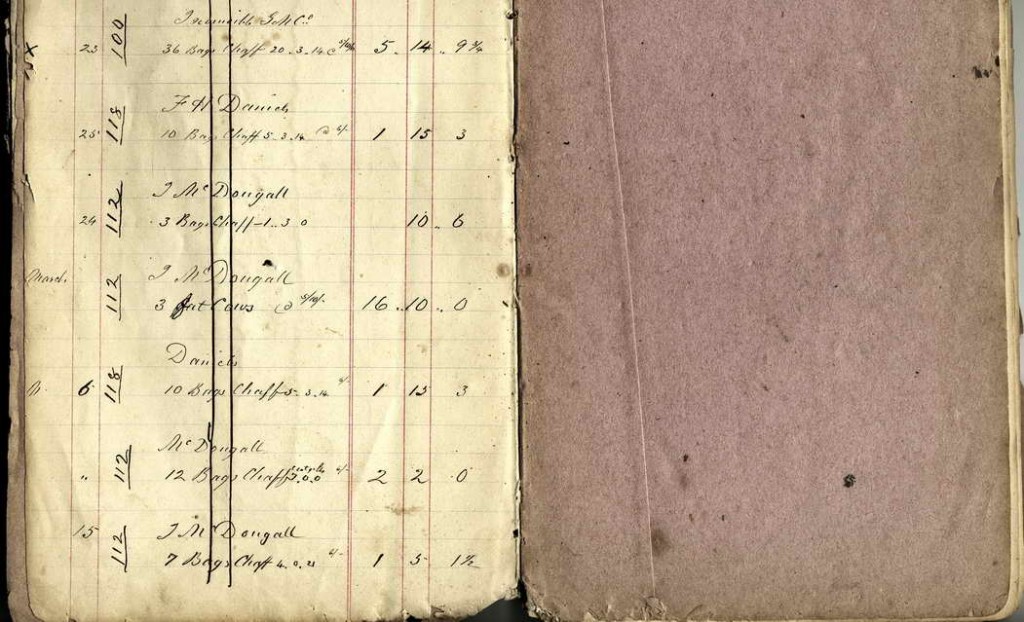 100 G M Co
23 36 Bags Chaff 20 . 3 . 14 @ 5 . 14 .. 9 ¾
118 F H Daniels
25 10 Bags Chaff 5 . 3 . 14 @ 6/- 1 15 3
112 J McDougall
24 3 Bags Chaff 1 .. 3 0 10 .. 6
March 112 J McDougall
3 fat Cows @ 16 .. 10 .. 0
118 Daniels
" 6 10 Bags Chaff 5 . 3 . 14 6/- 1 15 3
112 McDougall
" 12 Bags Chaff 7.0.0 6/- 2 2 0
15 112 J McDougall
7 Bags Chaff 4 . 0 . 21 6/- 1 5 1 ½